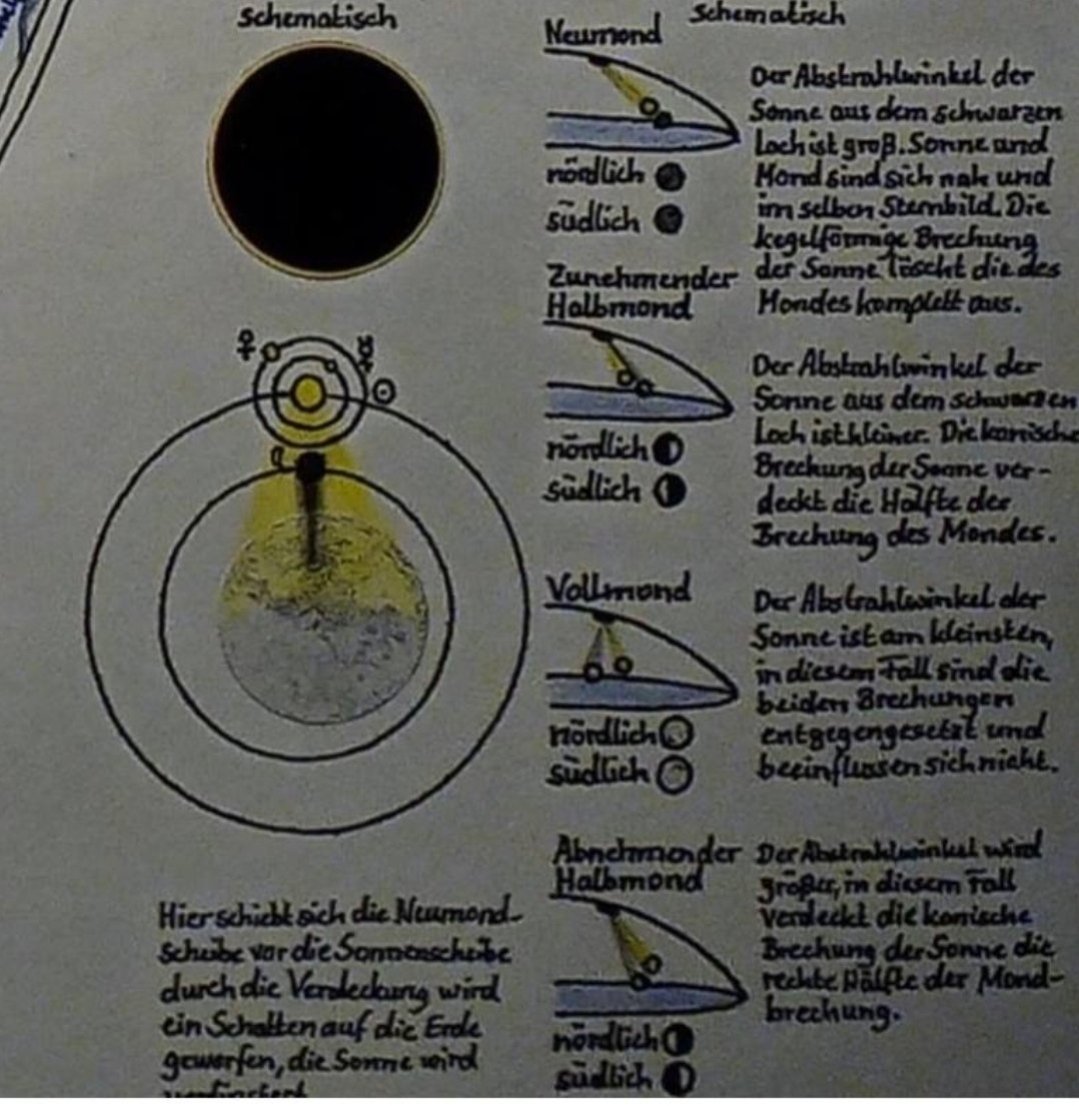 schematisch
Hier schiebt sich die Neumond-
scheibe vor die Sonnenscheibe
durch die Verdeckung wird
ein Schatten auf die Erde
geworfen, die Sonne wird
verfinstert
schematisch
Neumond
nördlich
südlich
Der Abstrahlwinkel der
Sonne aus dem schwarzen
Loch ist groß. Sonne und
Mond sind sich nah und
im selben Sternbild. Die
kegelförmige Brechung
der Sonne löscht die des
Mondes komplett aus.
Zunehmender
Halbmond
nördlich
südlich
Der Abstrahlwinkel der
Sonne aus dem schwarzen
Loch ist kleiner. Die konische
Brechung der Sonne ver-
deckt die Hälfte der
Brechung des Mondes.
Vollmond
nördlich
südlich
Der Abstrahlwinkel der
Sonne ist am kleinsten,
in diesem Fall sind die
beiden Brechungen
entgegengesetzt und
beeinflussen sich nicht.
Abnehmender
Halbmond
nördlich
südlich
Der Abstrahlwinkel wird
größer, in diesem Fall
verdeckt die konische
Brechung der Sonne die
rechte Hälfte der Mond-
brechung.